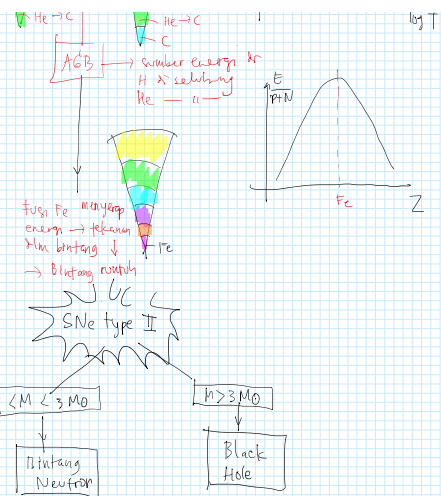 He → C
He → C
C
log T
AGB → sumber energi dr
H di selubung
He — " —
E
P+N
Fe
Z
fusi Fe menyerap
energi → tekanan
dlm bintang ↓
→ Bintang runtuh
Fe
SNe type II
< M < 3 M⊙
M > 3 M⊙
Bintang
Neutron
Black
Hole